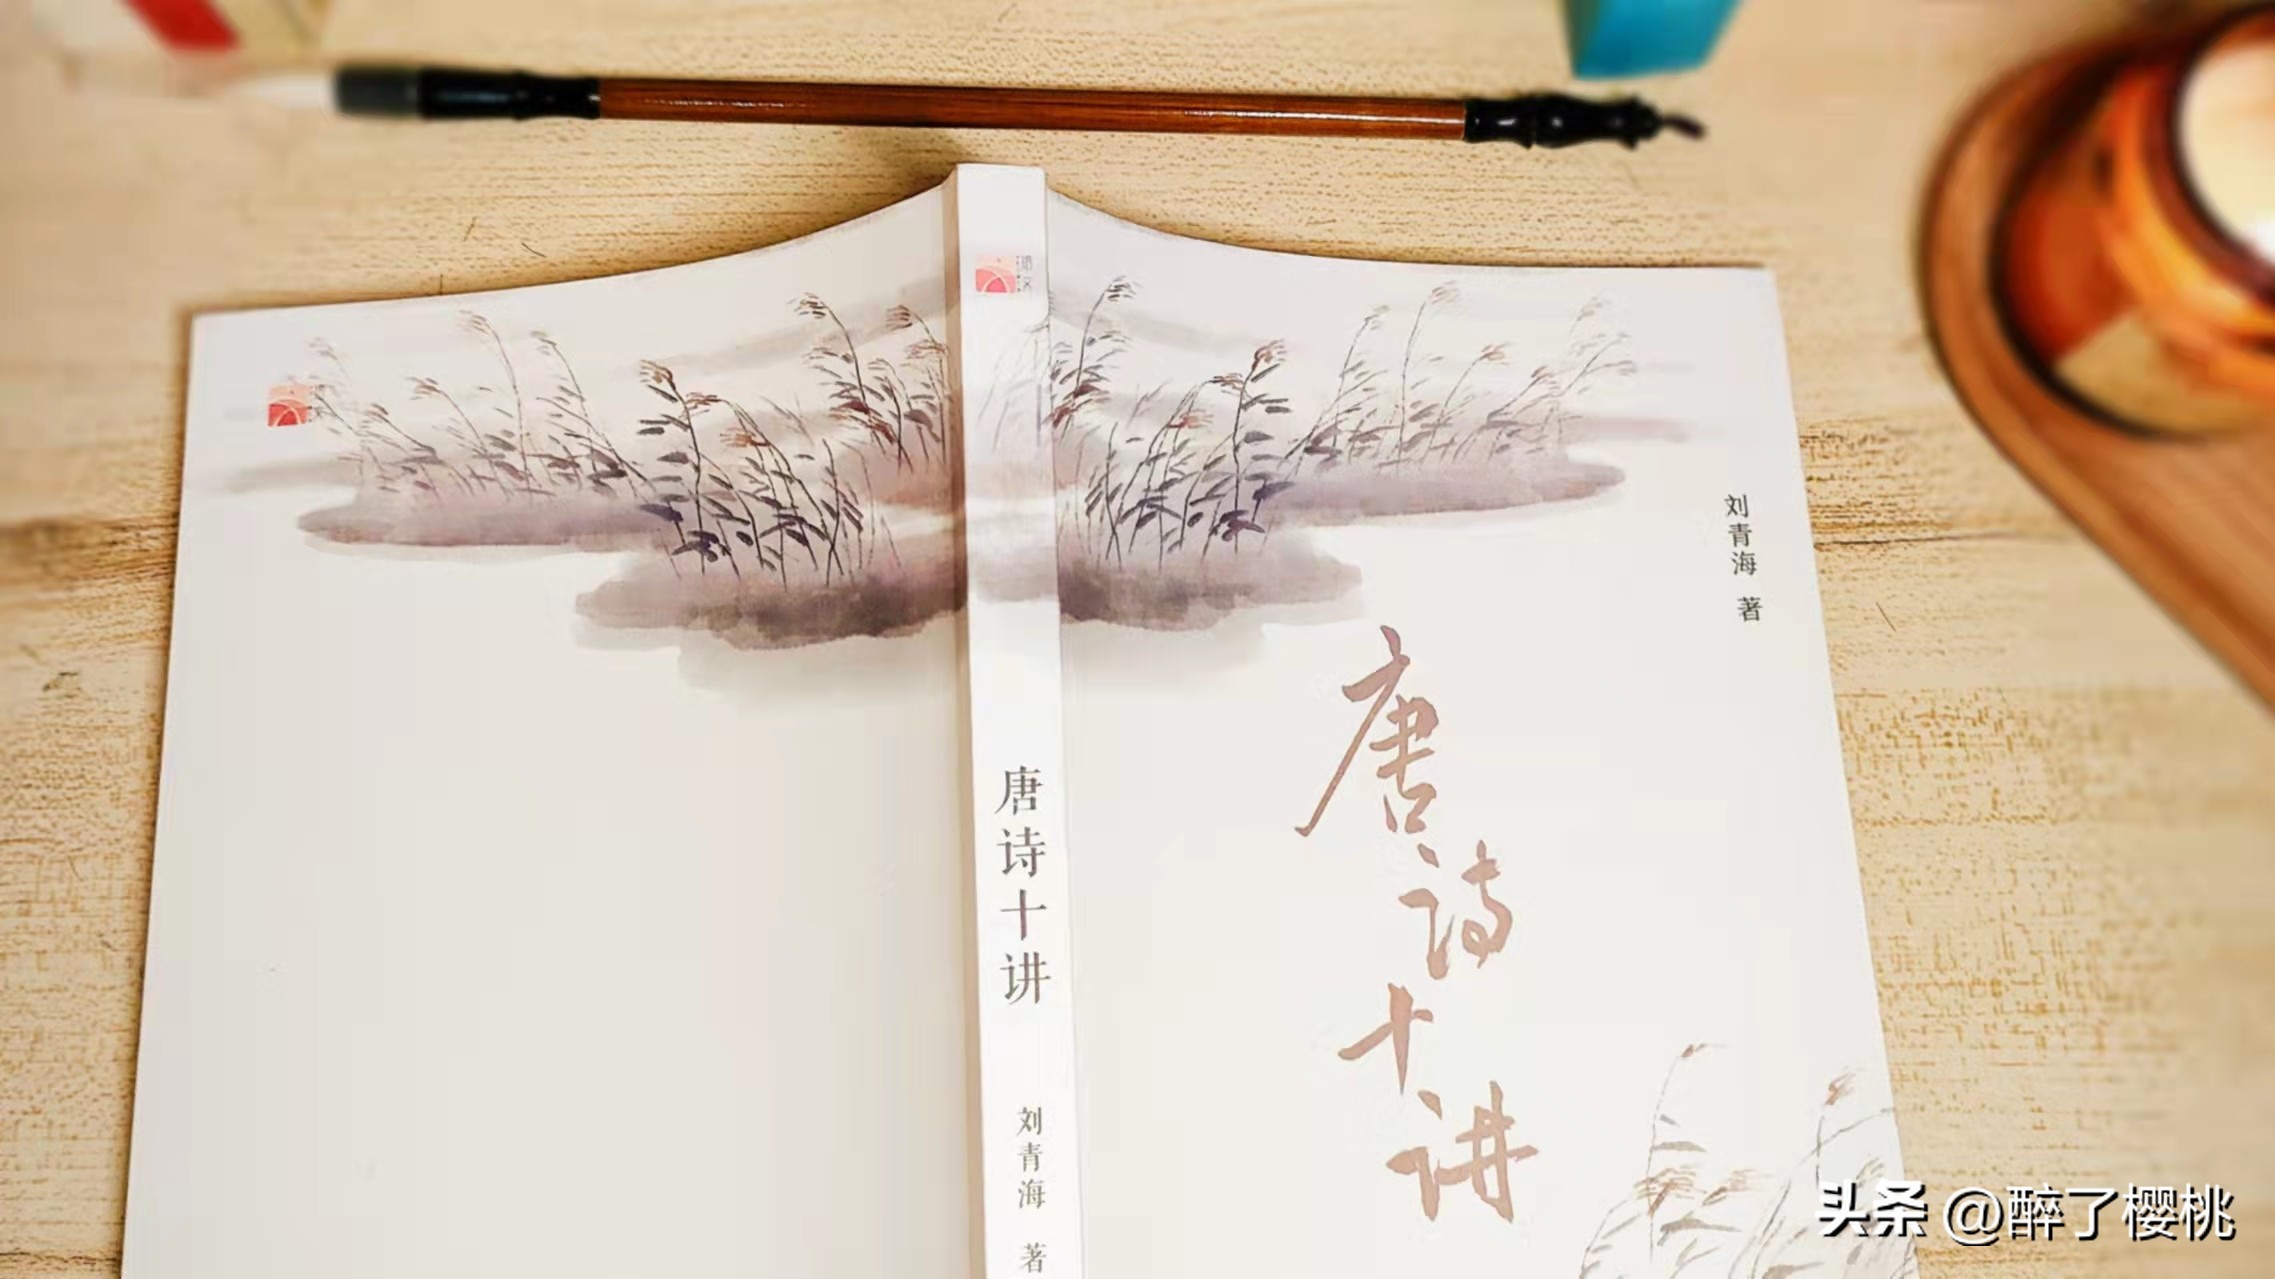 刘青海 著
唐诗十讲
唐诗十讲
刘青海 著
头条 @醉了樱桃